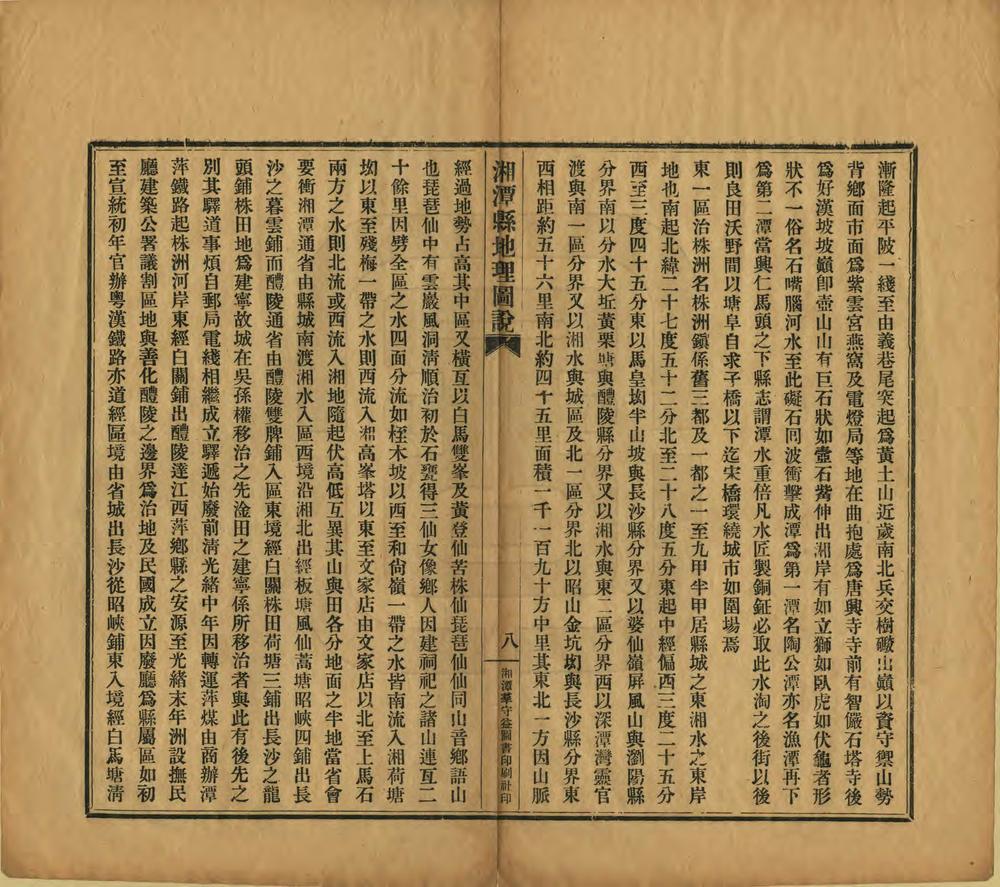 漸隆起平陂一綫至由義巷尾突起爲黃土山近歲南北兵交樹礮山巔以資守禦山勢
背鄉面市面爲紫雲宮燕窩及電燈局等地在曲抱處爲唐興寺寺前有智儼石塔寺後
爲好漢坡坡巔卽壺山山有巨石狀如壺石觜伸出湘岸有如立獅如臥虎如伏龜者形
狀不一俗名石嘴腦河水至此礙石囘波衝擊成潭爲第一潭名陶公潭亦名漁潭再下
爲第二潭當興仁馬頭之下縣志謂潭水重倍凡水匠製銅鉦必取此水淘之後街以後
則良田沃野間以塘阜自求子橋以下迄宋橋環繞城市如圍場焉
東一區治株洲名株洲鎭係舊三都及一都之一至九甲半甲居縣城之東湘水之東岸
地也南起北緯二十七度五十二分北至二十八度五分東起中經偏西三度二十五分
西至三度四十五分東以馬皇坳半山坡與長沙縣分界又以婆仙嶺屏風山與瀏陽縣
分界南以分水大坵黃栗塘與醴陵縣分界又以湘水與東二區分界西以深潭灣靈官
渡與南一區分界又以湘水與城區及北一區分界北以昭山金坑坳與長沙縣分界東
西相距約五十六里南北約四十五里面積一千一百九十方中里其東北一方因山脈
湘潭縣地理圖說
八
湘潭羣守益圖書印刷社印
經過地勢占高其中區又橫亙以白馬雙峯及黃登仙苦株仙琵琶仙仙同山音鄉語山
也琵琶仙中有雲巖風洞淸順治初於石甕得三仙女像鄉人因建祠祀之諸山連亙二
十餘里因劈全區之水四面分流如枉木坡以西至和尙嶺一帶之水皆南流入湘荷塘
坳以東至殘梅一帶之水則西流入湘高峯塔以東至文家店由文家店以北至上馬石
兩方之水則北流或西流入湘地隨起伏高低互異其山與田各分地面之半地當省會
要衝湘潭通省由縣城南渡湘水入區西境沿湘北出經板塘風仙蒿塘昭峽四鋪出長
沙之暮雲鋪而醴陵通省由醴陵雙牌鋪入區東境經白關株田荷塘三鋪出長沙之龍
頭鋪株田地爲建寧故城在吳孫權移治之先淦田之建寧係所移治者與此有後先之
別其驛道事煩自郵局電綫相繼成立驛遞始廢前淸光緖中年因轉運萍煤由商辦潭
萍鐵路起株洲河岸東經白關鋪出醴陵達江西萍鄉縣之安源至光緖末年洲設撫民
廳建築公署議割區地與善化醴陵之邊界爲治地及民國成立因廢廳爲縣屬區如初
至宣統初年官辦粵漢鐵路亦道經區境由省城出長沙從昭峽鋪東入境經白馬塘淸